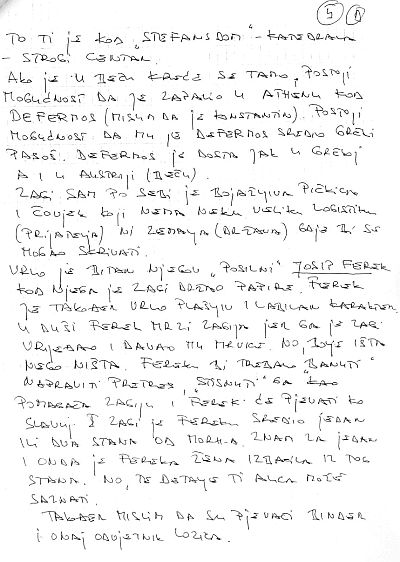 5
TO TI JE KOD „STEFANSDOM" - KATEDRALA
- STROGI CENTAR.
AKO JE U BEČU KREĆE SE TAMO, POSTOJI
MOGUĆNOST DA JE ZAPALIO U ATHENU KOD
DEFERMOS (MISLIM DA JE KONSTANTIN). POSTOJI
MOGUĆNOST DA MU JE DEFERMOS SREDIO GRČKI
PASOŠ. DEFERMOS JE DOSTA JAK U GRČKOJ
A I U AUSTRIJI (BEČU).
ZAGI SAM PO SEBI JE BOJAŽLJIVA PIČKICA
I ČOVJEK KOJI NEMA NEKU VELIKU LOGISTIKU
(PRIJATELJA) NI ZEMALJA (DRŽAVA) GDJE BI SE
MOGAO SKRIVATI.
VRLO JE BITAN NJEGOV „POSILNI" JOSIP FEREK
KOD NJEGA JE ZAGI DRŽAO PAPIRE. FEREK
JE TAKOĐER VRLO PLAŠLJIV I LABILAN KARAKTER.
U DUŠI FEREK MRZI ZAGIJA JER GA JE ZAGI
VRIJEĐAO I DAVAO MU MRVICE. NO, BOLJE IŠTA
NEGO NIŠTA. FEREKU BI TREBALO BANUTI
NAPRAVITI PRETRES, „STISNUTI" GA KAO
POMAGAČA ZAGIJU I FEREK ĆE PJEVATI KO
SLAVUJ. ZAGI JE FEREKU SREDIO JEDAN
ILI DVA STANA OD MORH-A. ZNAM ZA JEDAN
I ONDA JE FEREKA ŽENA IZBACILA IZ TOG
STANA. NO, TE DETALJE TI LAKO MOŽEŠ
SAZNATI.
TAKOĐER MISLIM DA SU PJEVAČI BINDER
I ONAJ ODVJETNIK LOZICA.